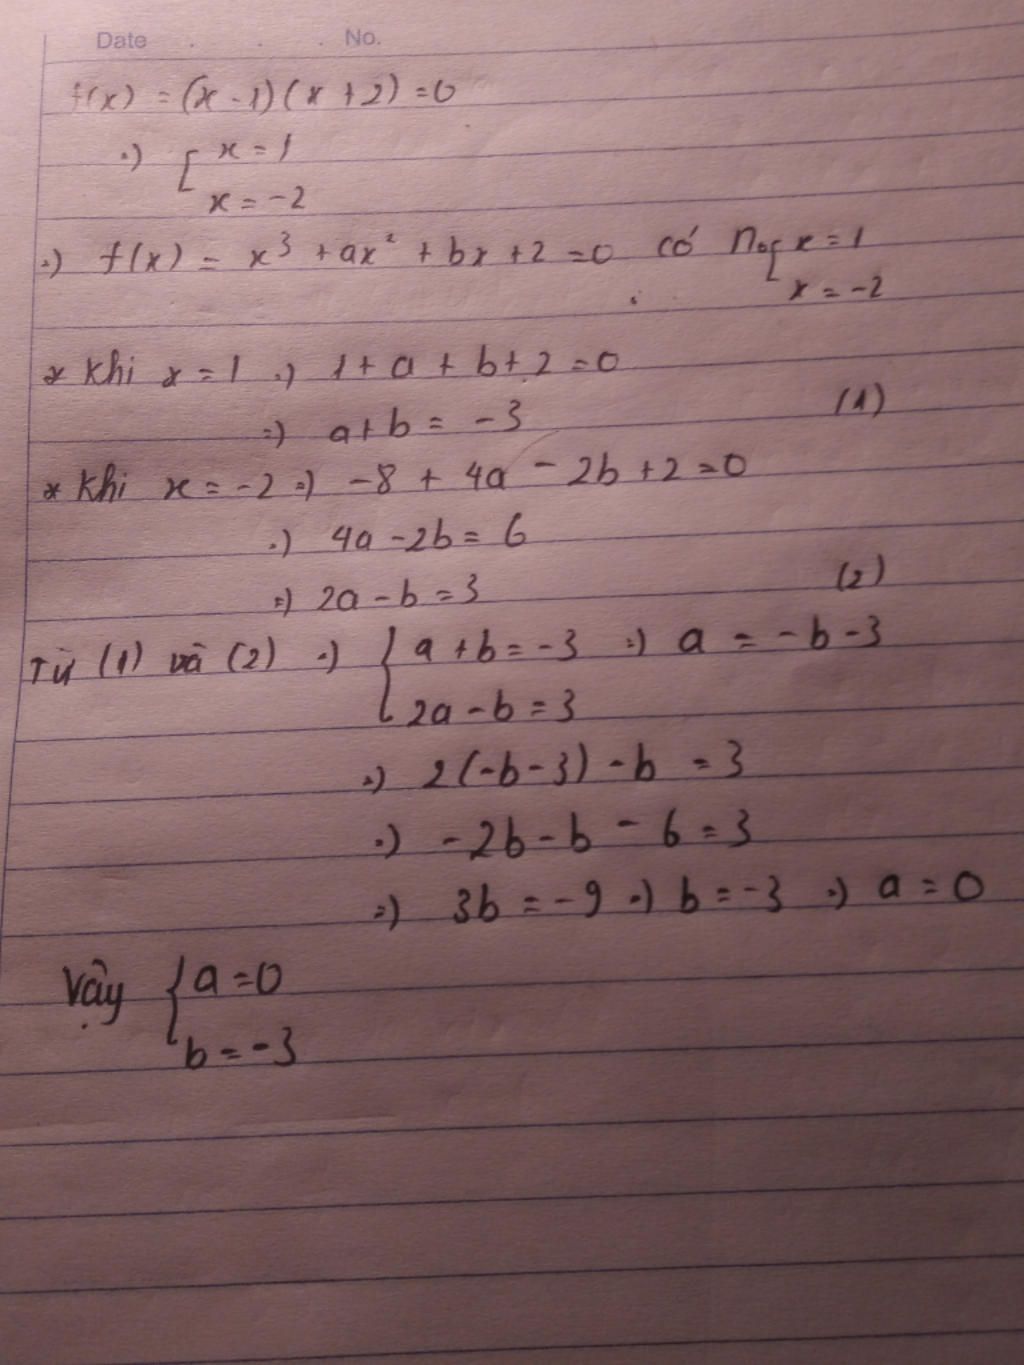 Date . . . No.
f(x) = (x - 1)(x + 2) = 0
=) [ x = 1
x = -2
=) f(x) = x³ + ax² + bx + 2 = 0 có n₀ [ x = 1
x = -2
* Khi x = 1 =) 1 + a + b + 2 = 0
=) a + b = -3 (1)
* Khi x = -2 =) -8 + 4a - 2b + 2 = 0
=) 4a - 2b = 6
=) 2a - b = 3 (2)
Từ (1) và (2) =) { a + b = -3 =) a = -b - 3
2a - b = 3
=) 2(-b - 3) - b = 3
=) -2b - b - 6 = 3
=) 3b = -9 =) b = -3 =) a = 0
Vậy { a = 0
b = -3